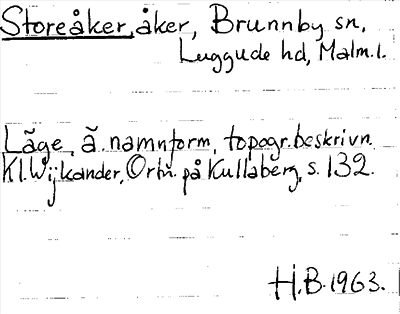 Storeåker, åker, Brunnby sn,
Luggude hd, Malm. l.
Läge, ä. namnform, topogr. beskrivn.
Kl. Wijkander, Ortn. på Kullaberg, s. 132.
H.B. 1963.